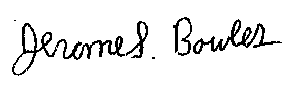 Jerome S. Bowles